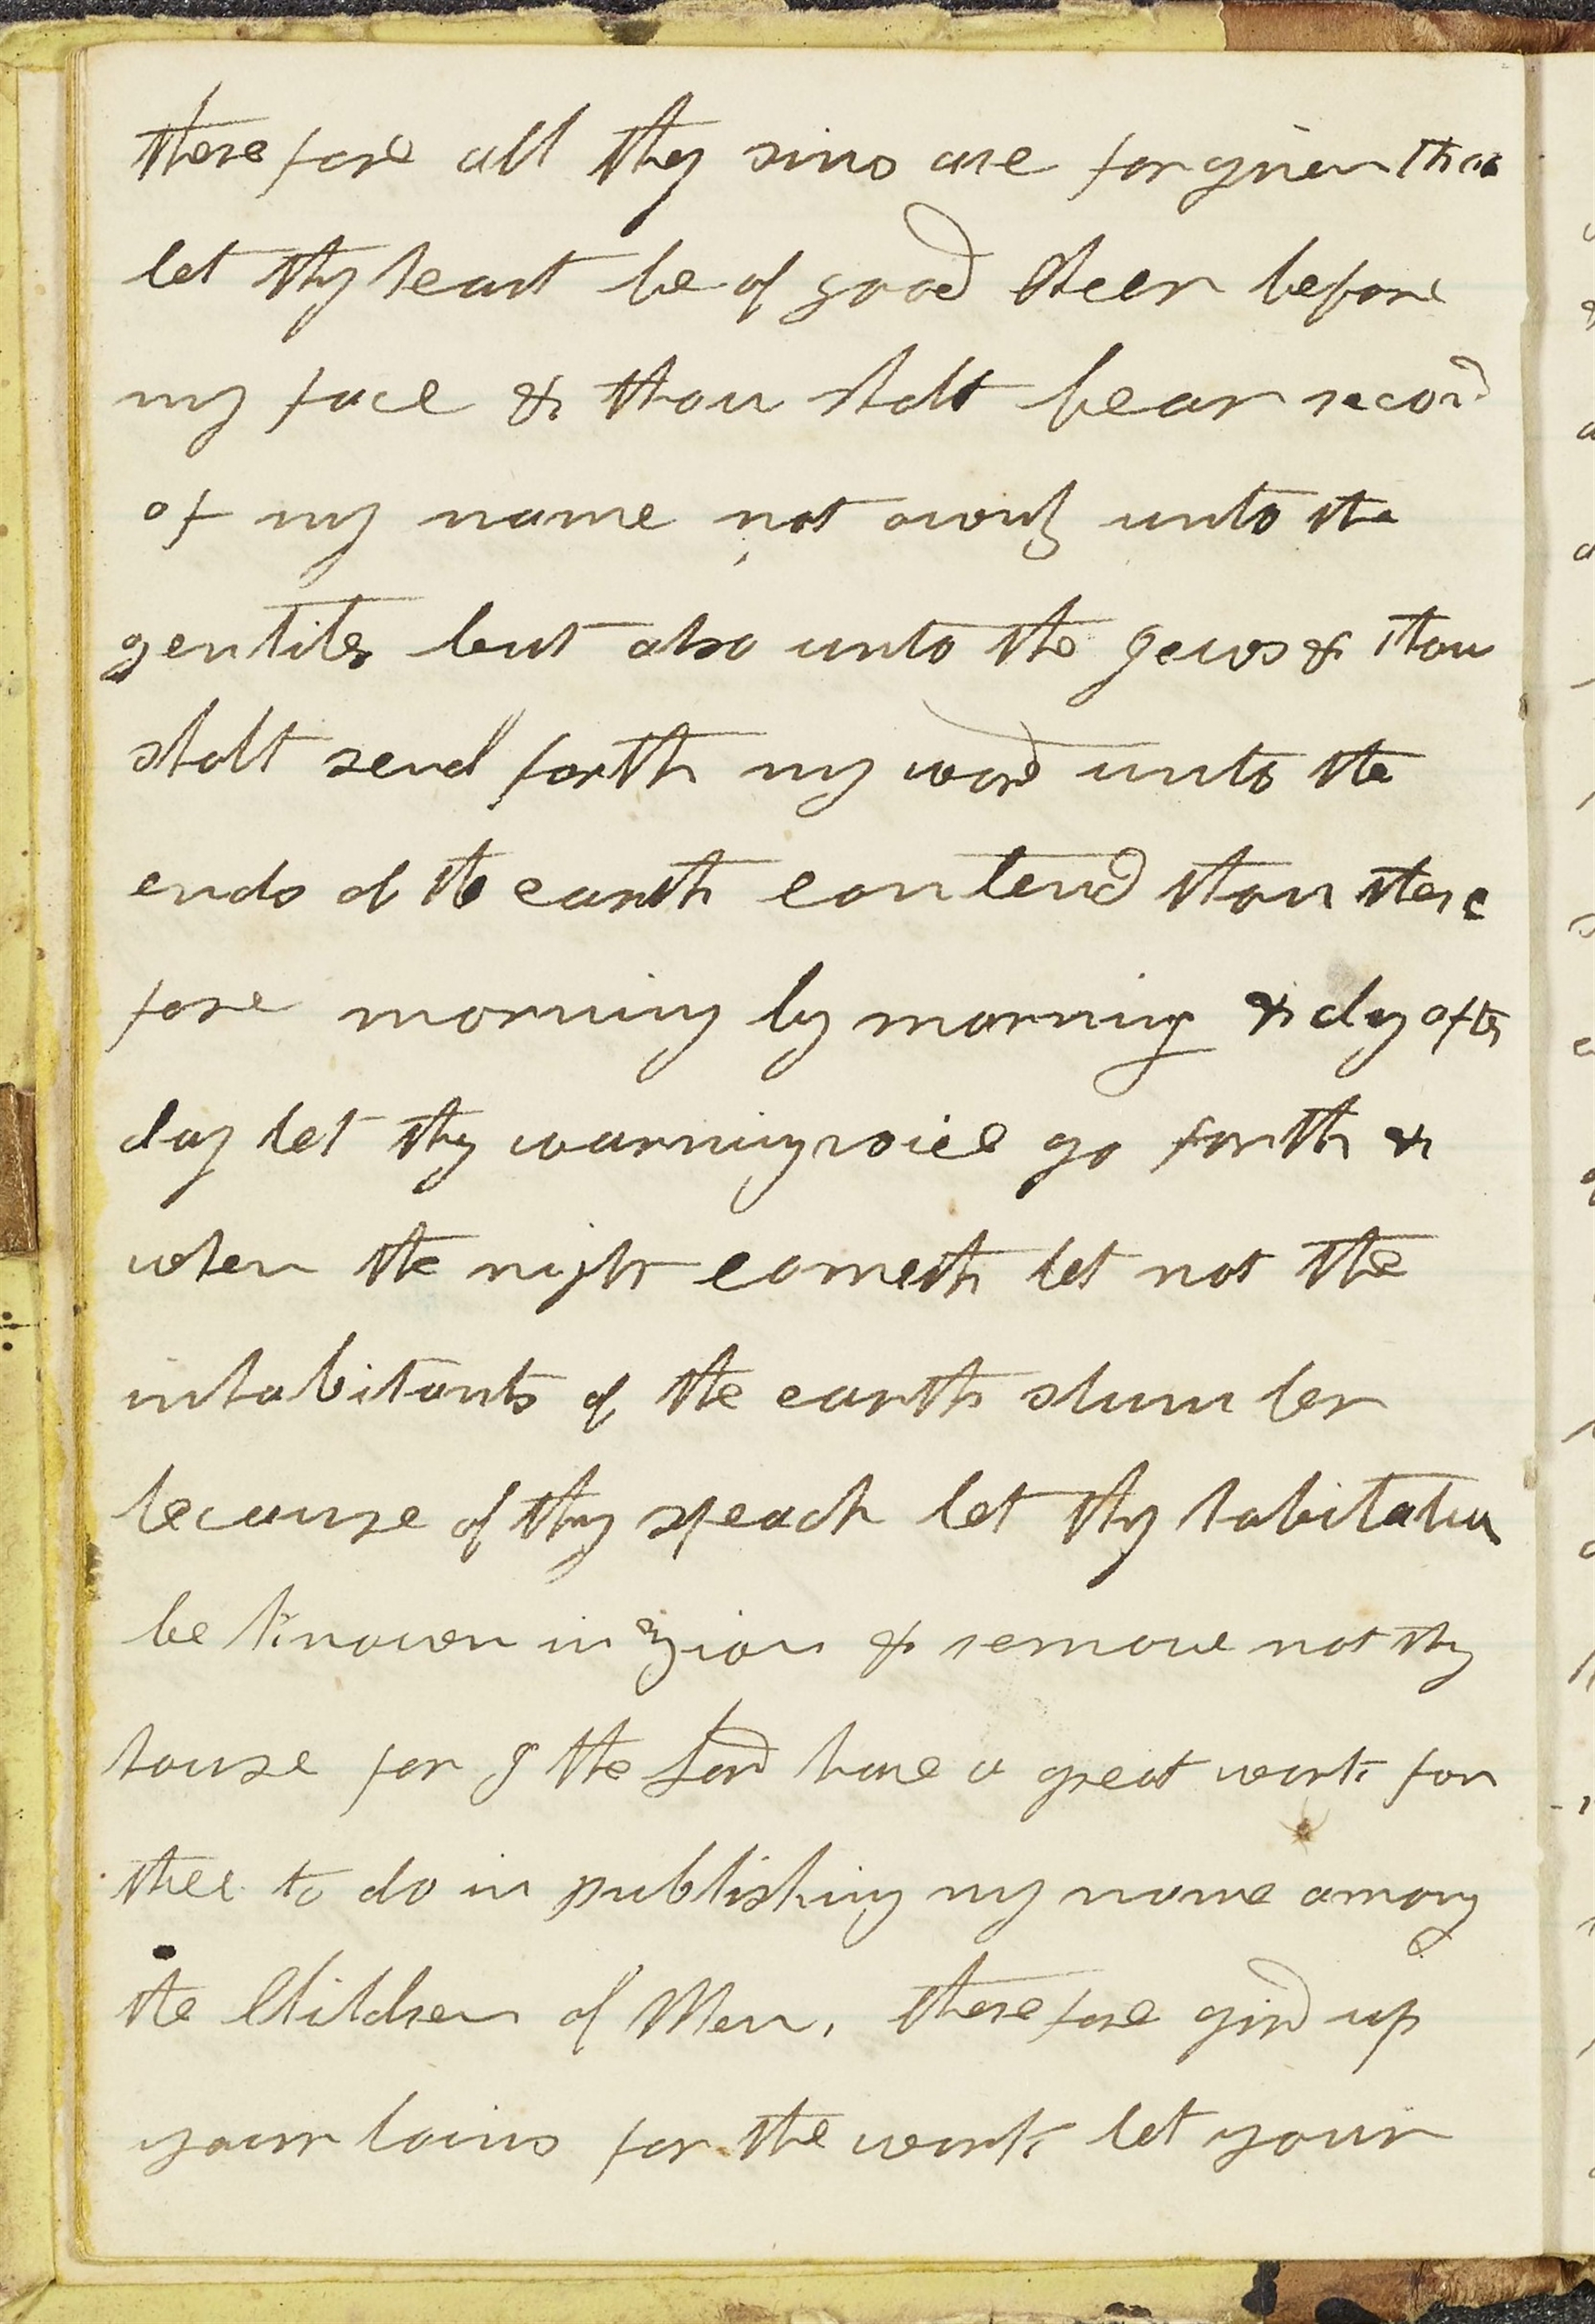 therefore all thy sins are forgiven thee
let thy heart be of good cheer before
my face & thou shalt bear record
of my name not only unto the
gentiles but also unto the Jews & thou
shalt send forth my word unto the
ends of the earth contend thou there
fore morning by morning & dy after
day let thy warning voice go forth &
when the night cometh let not the
inhabitants of the earth slumber
because of thy speach let thy habitation
be known in Zion & remove not thy
house for I the Lord have a great work for
thee to do in publishing my name among
the Children of Men, therefore gird up
your loins for the work let your